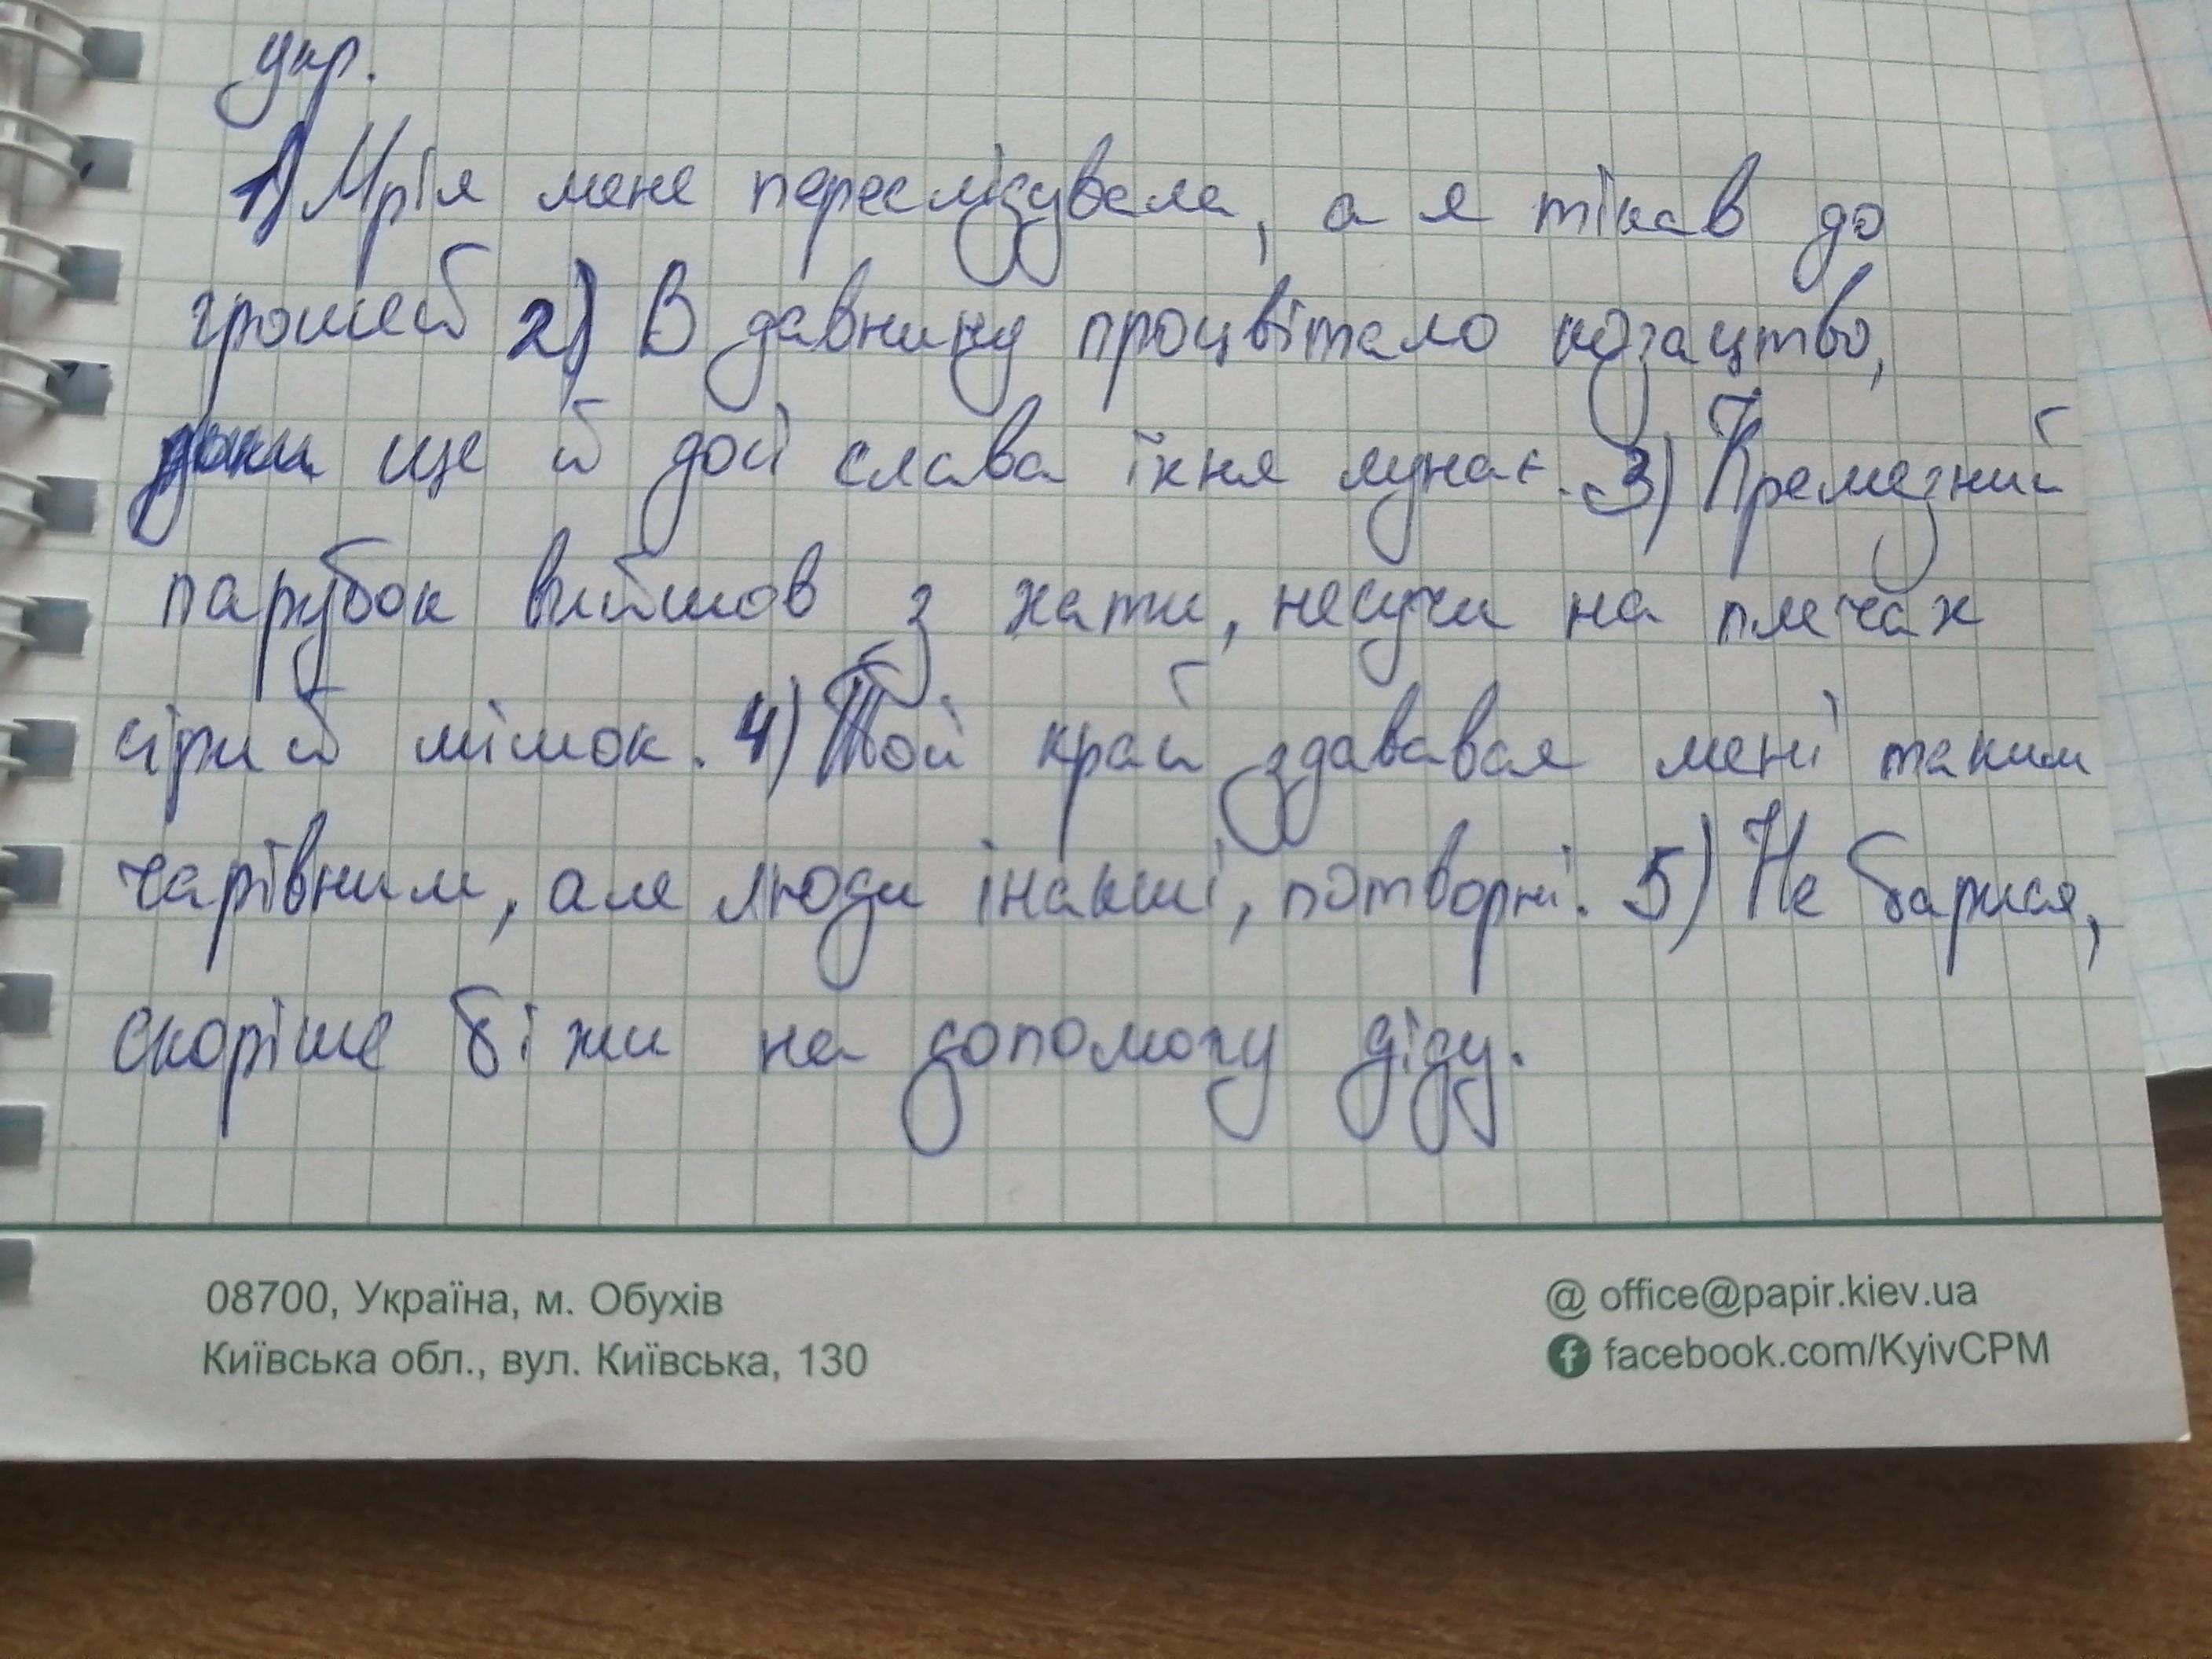 укр.
1) Мрія мене переслідувала, а я тікав до
грошей 2) В давнину процвітало козацтво,
доки ще й досі слава їхня лунає. 3) Кремезний
парубок вийшов з хати, несучи на плечах
сірий мішок. 4) Той край здавався мені таким
чарівним, але люди інакші, потворні. 5) Не барися,
скоріше біжи на допомогу діду.
08700, Україна, м. Обухів
Київська обл., вул. Київська, 130
@ office@papir.kiev.ua
facebook.com/KyivCPM